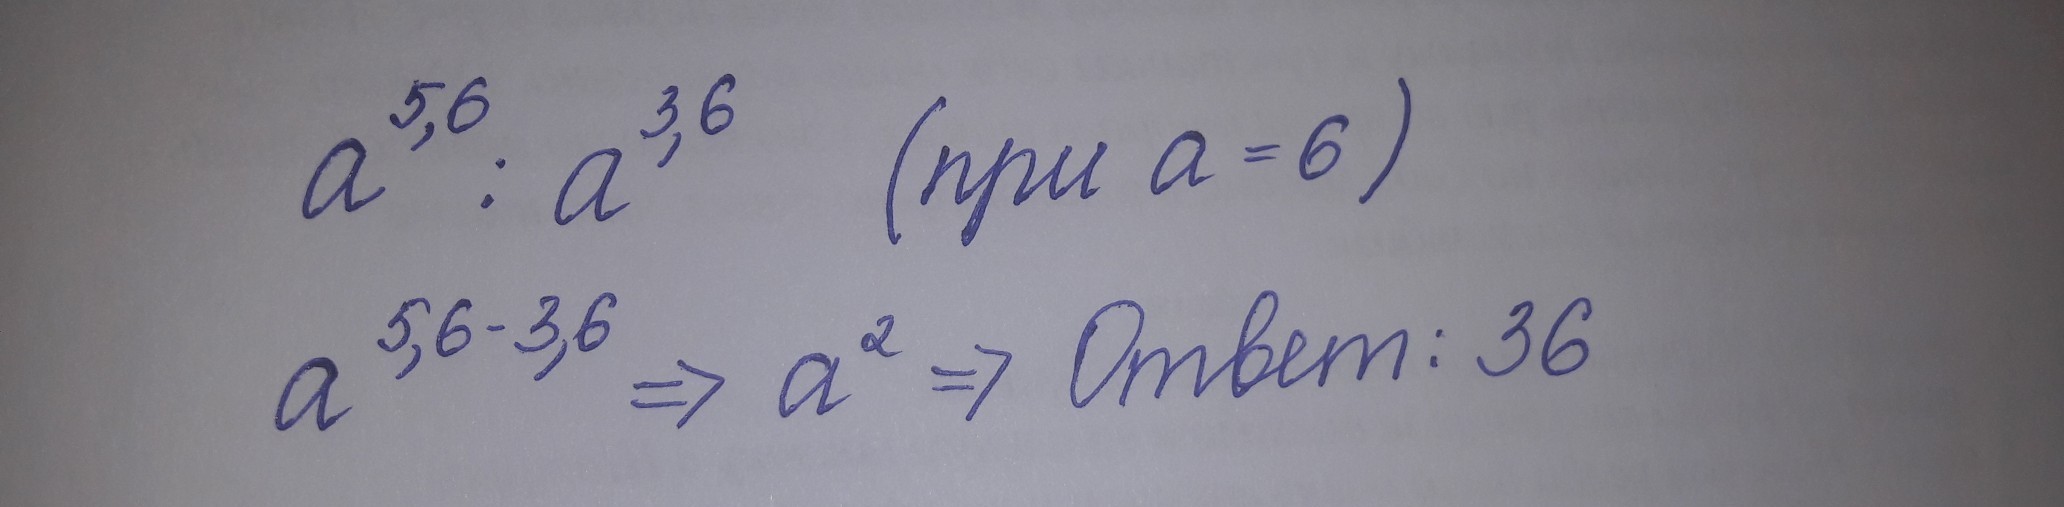 a^5,6 : a^3,6 (при a = 6)
a^5,6-3,6 => a^2 => Ответ: 36